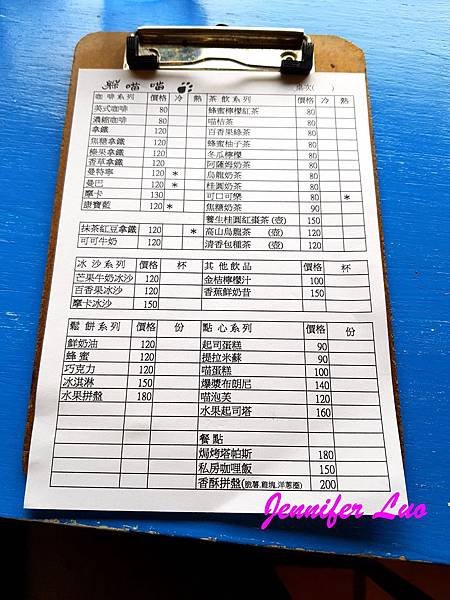 躲喵喵 桌次( )
咖啡系列 價格 冷 熱 茶飲系列 價格 冷 熱
美式咖啡 80 蜂蜜檸檬紅茶 80
濃縮咖啡 80 喵桔茶 80
拿鐵 120 百香果綠茶 80
焦糖拿鐵 120 蜂蜜柚子茶 80
榛果拿鐵 120 冬瓜檸檬 80
香草拿鐵 120 阿薩姆奶茶 80
曼特寧 120 * 烏龍奶茶 80
曼巴 120 * 桂圓奶茶 80
摩卡 130 可口可樂 80 *
康寶藍 120 * 焦糖奶茶 90
養生桂圓紅棗茶(壺) 150
抹茶紅豆拿鐵 120 * 高山烏龍茶 (壺) 120
可可牛奶 120 清香包種茶 (壺) 120
冰沙系列 價格 杯 其他飲品 價格 杯
芒果牛奶冰沙 120 金桔檸檬汁 100
百香果冰沙 120 香蕉鮮奶昔 150
摩卡冰沙 150
鬆餅系列 價格 份 點心系列 價格 份
鮮奶油 120 起司蛋糕 90
蜂蜜 120 提拉米蘇 90
巧克力 120 喵蛋糕 100
冰淇淋 150 爆漿布朗尼 140
水果拼盤 180 喵泡芙 120
水果起司塔 160
餐點
焗烤塔帕斯 180
私房咖哩飯 150
香酥拼盤(脆薯,雞塊,洋蔥圈) 200
Jennifer Luo